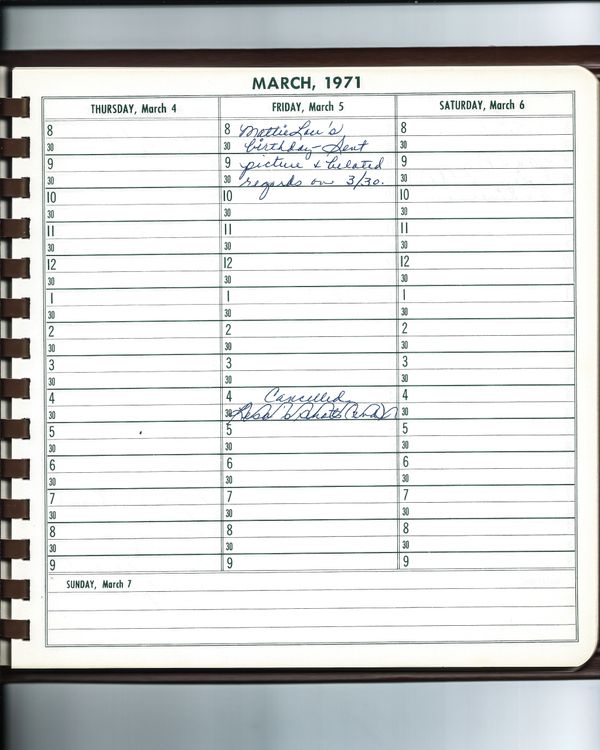 MARCH, 1971
THURSDAY, March 4
FRIDAY, March 5
SATURDAY, March 6
8
30
9
30
10
30
11
30
12
30
1
30
2
30
3
30
4
30
5
30
6
30
7
30
8
30
9
8 Mattie Lou's
30 birthday - Sent
9 picture & belated
30 regards on 3/30.
10
30
11
30
12
30
1
30
2
30
3
30
4 Cancelled
30 Resa's shots (2nd)
5
30
6
30
7
30
8
30
9
8
30
9
30
10
30
11
30
12
30
1
30
2
30
3
30
4
30
5
30
6
30
7
30
8
30
9
SUNDAY, March 7